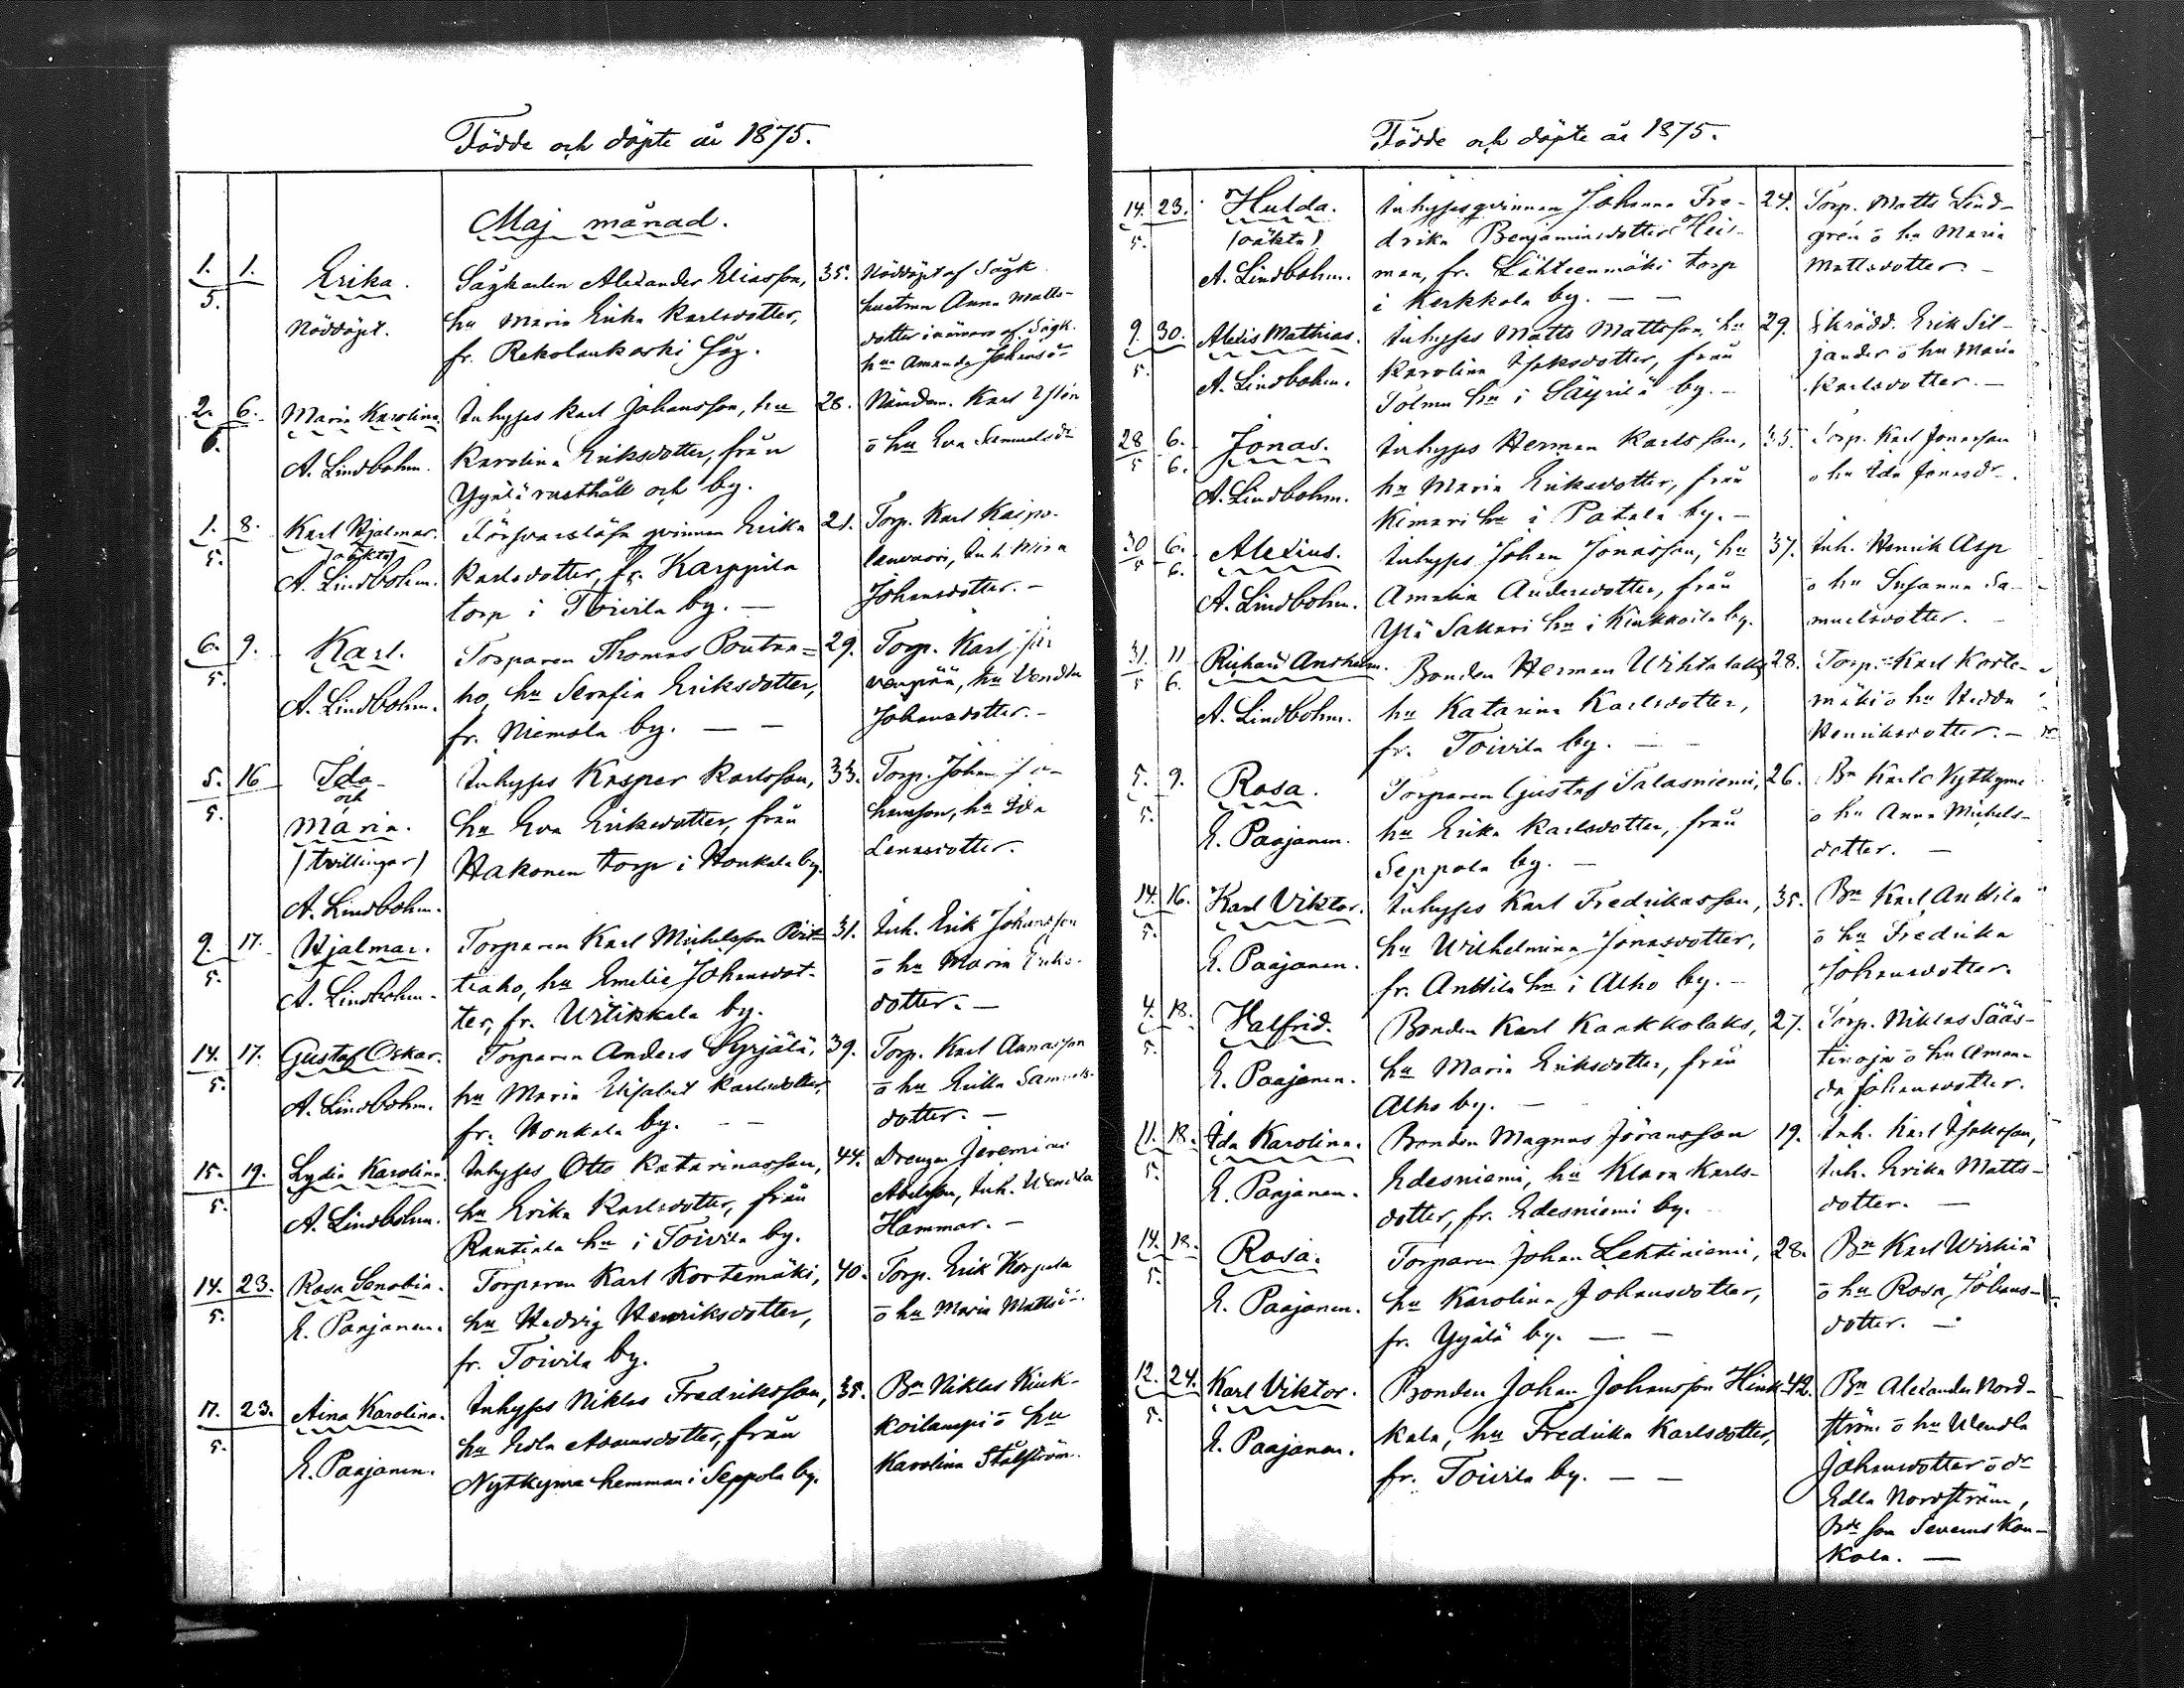 Födde och döpte år 1875.
Maj månad.
1. 1. Erika. Sågkarlen Alexander Eliasson, 35. Nöddöpt af Sågk.
5. hustrun Anna Matts-
Nöddöpt. hu Maria Erika Karlsdotter, dotter i närvaro af Sågk.
fr. Rekolankoski såg. hun Amanda Johansdr
2. 6. Maria Karolina. Inhyses Karl Johansson, hu 28. Nämdem. Karl Yllén
6. A. Lindbohm. Karolina Eriksdotter, från o hu Eva Samuelsdr
Yijälä rusthåll och by.
1. 8. Karl Hjalmar. Försvarslösa qvinnan Erika 21. Torp. Karl Kaipo-
5. (oäkta)
A. Lindbohm. Karlsdotter, fr. Karppila lanvuori, Inh. Mina
torp i Toivila by. — Johansdotter. —
6. 9. Karl. Torparen Thomas Poutun= 29. Torp. Karl
5. A. Lindbohm. ho, hu Serafia Eriksdotter, hu Vendla
fr. Niemola by. — — Johansdotter. —
5. 16 Ida Inhyses Kasper Karlsson, 33. Torp. Johan Jo-
och
5. Maria. hu Eva Eriksdotter, från hansson, hu Ida
(tvillingar) Hakonen torp i Honkala by. Lenasdotter.
A. Lindbohm.
9. 17. Hjalmar. Torparen Karl Michelsson 31. Inh. Erik Johansson
5. A. Lindbohm. hu Emelie Johansdot- o hu Maria Eriks-
ter, fr. Uitikkala by. dotter. —
14. 17. Gustaf Oskar. Torparen Anders Syrjälä, 39. Torp. Karl Annasson
5. A. Lindbohm. hu Maria Elisabet Karlsdotter, o hu Erika Samuels-
fr. Honkala by. — — dotter. —
15. 19. Lydia Karolina. Inhyses Otto Katarinasson, 44. Drengen Jeremias
5. A. Lindbohm. hu Erika Karlsdotter, från Abelsson, Inh. Wendla
Rantiala hn i Toivila by. Hammar. —
14. 23. Rosa Senobia. Torparen Karl Kortemäki, 40. Torp. Erik Korpula
5. E. Paajanen. hu Hedvig Henriksdotter, o hu Maria Mattsdr.
fr. Toivila by.
17. 23. Aina Karolina. Inhyses Niklas Fredriksson, 35. Bn Niklas Kiuk-
5. E. Paajanen. hu Edla Adamsdotter, från koilampi o hu
Nytkyma hemman i Seppola by. Karolina Stålström.
Födde och döpte år 1875.
14. 23. Hulda. Inhysesqvinnan Johanna Fre- 24. Torp. Matts Lind-
5. (oäkta) drika Benjaminsdotter Hei- gren o hu Maria
A. Lindbohm. man, fr. Lähteenmäki torp Mattsdotter. —
i Kerkkola by. — —
9. 30. Alexis Mathias. Inhyses Matts Mattsson, hu 29. Skrädd. Erik Sil-
5. A. Lindbohm. Karolina Isaksdotter, från jander o hu Maria
Tolmu hn i Säyriä by. — Karlsdotter. —
28 6. Jonas. Inhyses Herman Karlsson, 35. Torp. Karl Jonasson
5 6. A. Lindbohm. hu Maria Eriksdotter, från o hu Ida Jonasdr.
Kimari hn i Patala by. —
30 6. Alexius. Inhyses Johan Jonasson, hu 37. Inh. Henrik Asp
5 6. A. Lindbohm. Amalia Andersdotter, från o hu Susanna Sa-
Ylä Sakari hn i Kiukkoila by. muelsdotter.
31. 11 Richard Anshelm. Bonden Herman Wihtalaks, 28. Torp. Karl Korte-
5 6. A. Lindbohm. hu Katarina Karlsdotter, mäki o hu Hedda
fr. Toivila by. — — Henriksdotter. —
5. 9. Rosa. Torparen Gustaf Salasniemi, 26. Bn Karl Nytkyme
5. E. Paajanen. hu Erika Karlsdotter, från o hu Anna Michels-
Seppola by. — dotter. —
14. 16. Karl Viktor. Inhyses Karl Fredrikasson, 35. Bn Karl Anttila
5. E. Paajanen. hu Wilhelmina Jonasdotter, o hu Fredrika
fr. Anttila hn i Alho by. — Johansdotter.
4. 18. Halfrid. Bonden Karl Kaakkolaks, 27. Torp. Niklas Sääs-
5. E. Paajanen. hu Maria Eriksdotter, från tinoja o hu Aman-
Alho by. — da Johansdotter.
11. 18. Ida Karolina. Bonden Magnus Jöransson 19. Inh. Karl Isaksson,
5. E. Paajanen. Edesniemi, hu Klara Karls- Inh. Erika Matts-
dotter, fr. Edesniemi by. dotter. —
14. 18. Rosa. Torparen Johan Lehtiniemi, 28. Bn Karl Wirkiä
5. E. Paajanen. hu Karolina Johansdotter, o hu Rosa Johans-
fr. Yijälä by. — — dotter. —
12. 24. Karl Viktor. Bonden Johan Johansson Hink- 42. Bn Alexander Nord-
5. E. Paajanen. kala, hu Fredrika Karlsdotter, ström o hu Wendla
fr. Toivila by. — — Johansdotter o dr
Edla Nordström,
Bde son Severus Kou-
kola. —